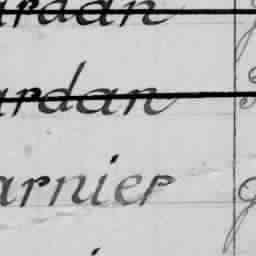 ardan
ardan
arnier